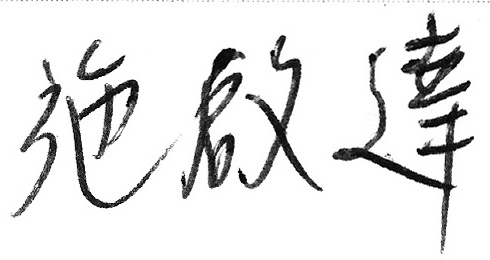 施啟達